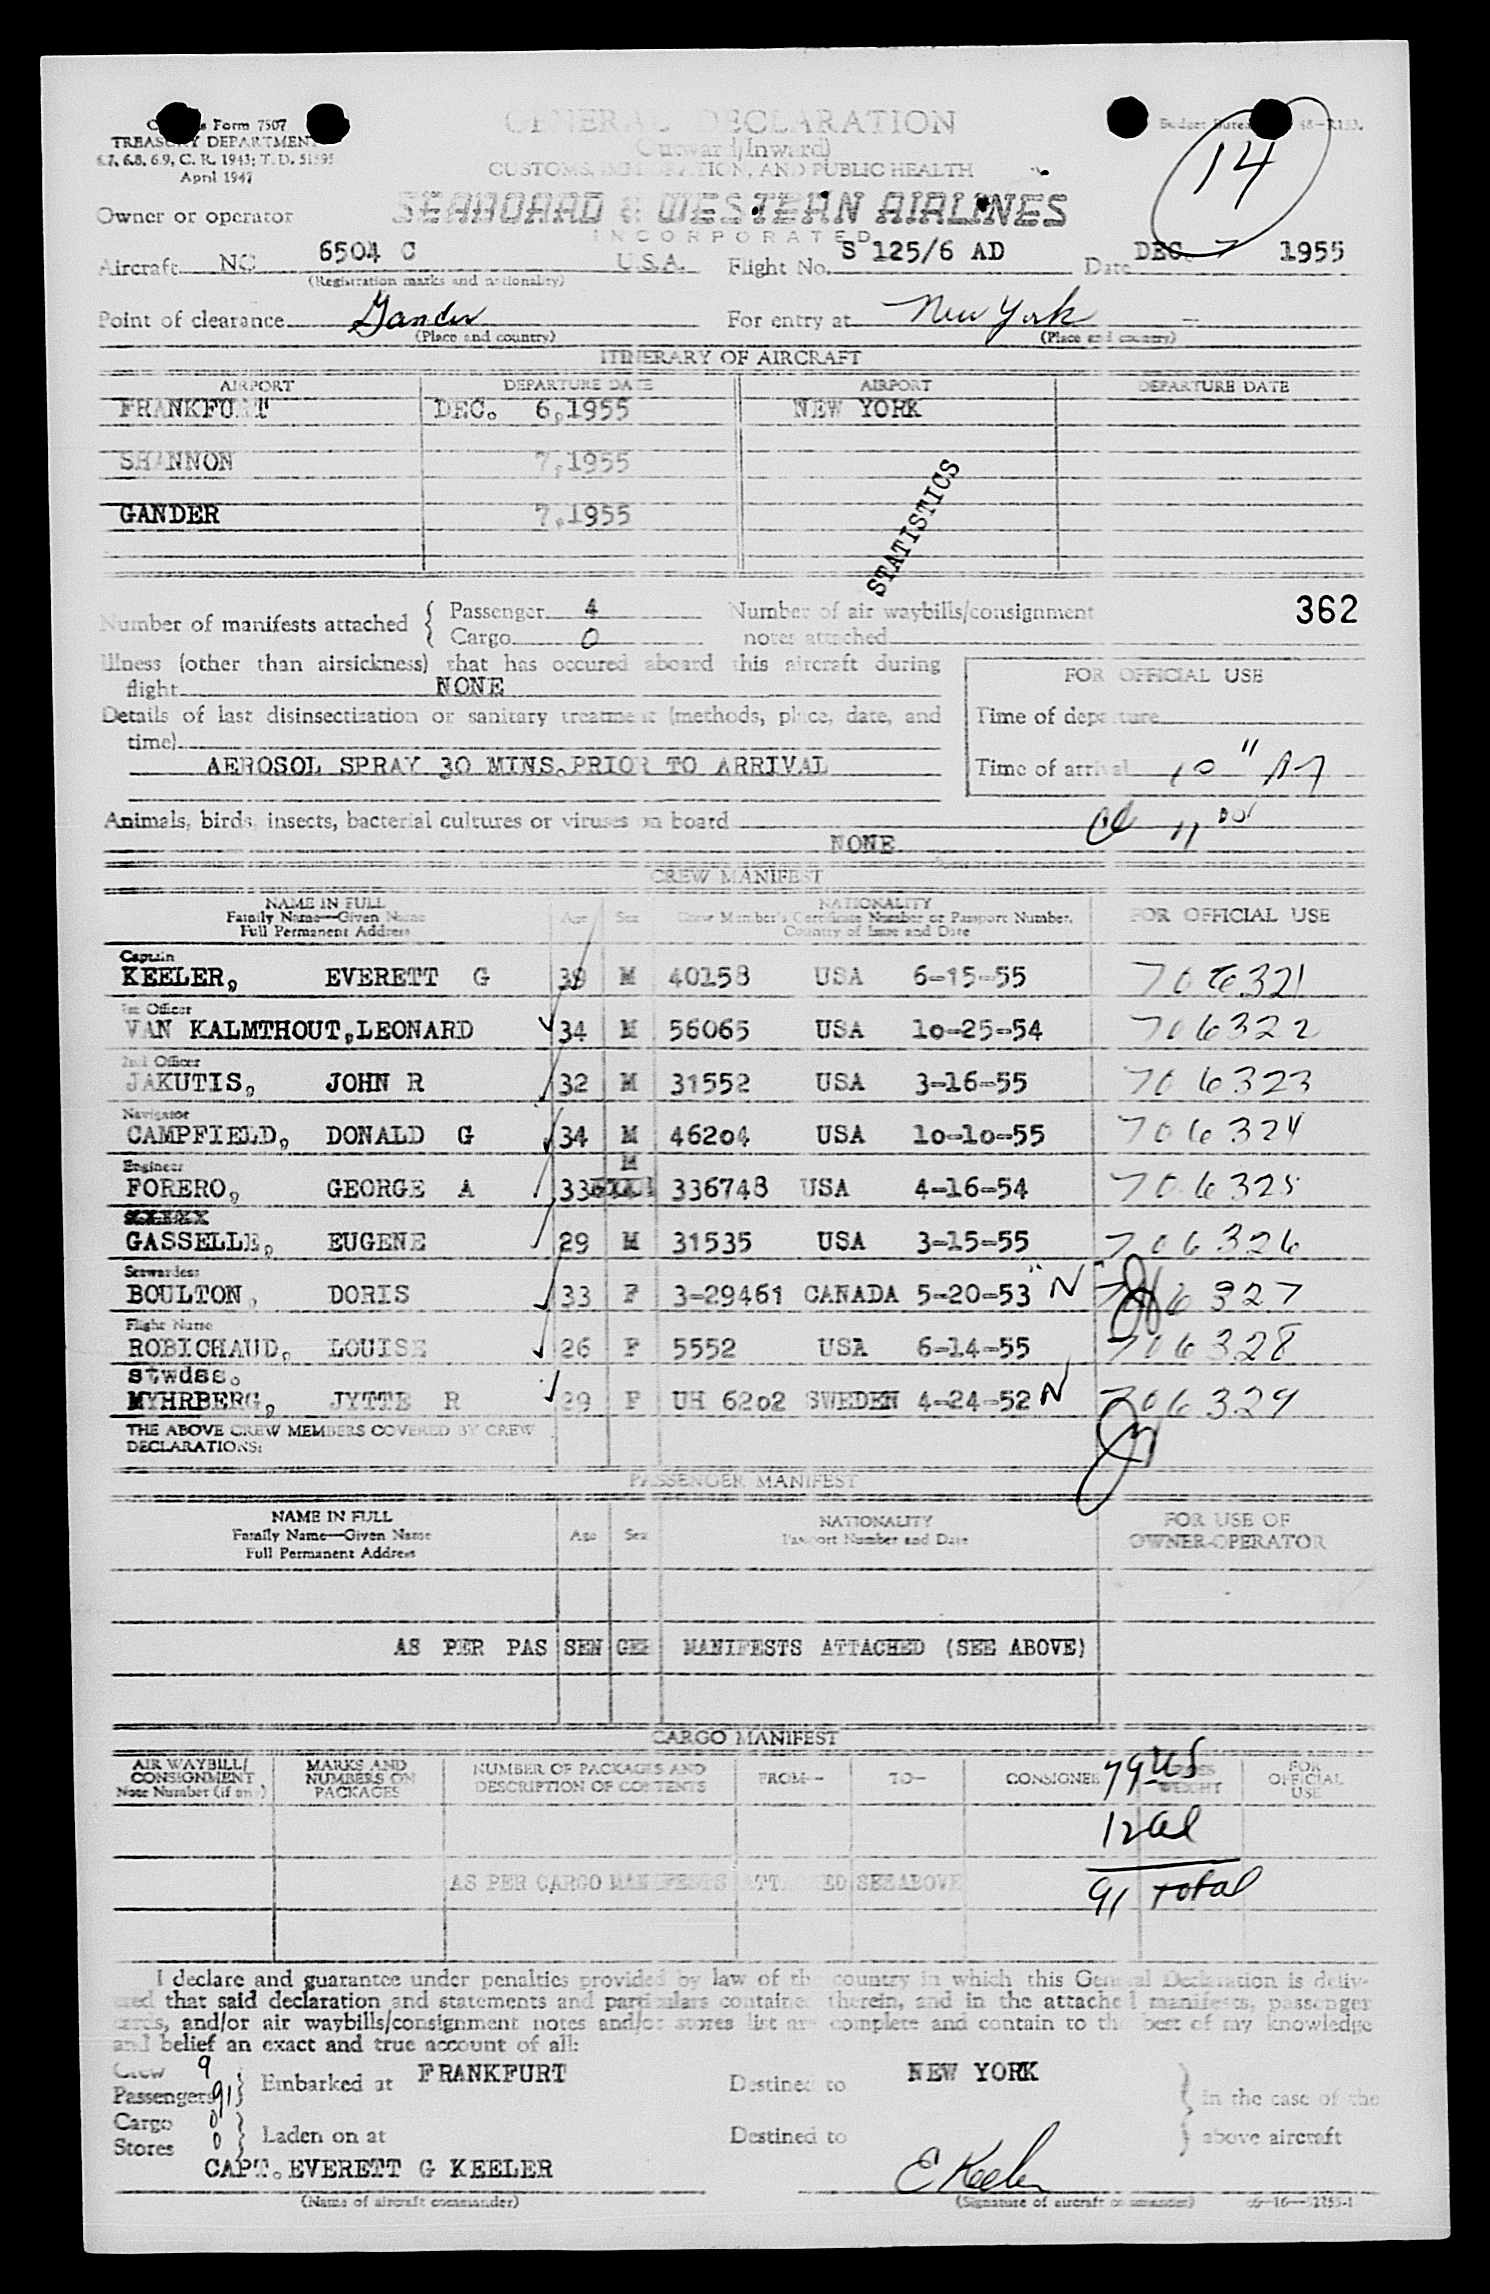 Form 7507
TREASURY DEPARTMENT
6.7, 6.8, 6.9, C. R. 1943; T. D. 51595
April 1947
GENERAL DECLARATION
(Outward/Inward)
CUSTOMS, IMMIGRATION, AND PUBLIC HEALTH
14
Owner or operator SEABOARD & WESTERN AIRLINES
INCORPORATED
Aircraft NC 6504 C U.S.A. Flight No. S 125/6 AD Date DEC. 7 1955
(Registration marks and nationality)
Point of clearance Gander For entry at New York
(Place and country) (Place and country)
ITINERARY OF AIRCRAFT
AIRPORT DEPARTURE DATE AIRPORT DEPARTURE DATE
FRANKFURT DEC. 6,1955 NEW YORK
SHANNON 7,1955
GANDER 7,1955
STATISTICS
Number of manifests attached { Passenger 4 Number of air waybills/consignment 362
Cargo 0 notes attached
Illness (other than airsickness) that has occured aboard this aircraft during
flight NONE
FOR OFFICIAL USE
Details of last disinsectization or sanitary treatment (methods, place, date, and
time)
Time of departure
AEROSOL SPRAY 30 MINS.PRIOR TO ARRIVAL
Time of arrival 10 "
Animals, birds, insects, bacterial cultures or viruses on board
NONE
11 00
CREW MANIFEST
NAME IN FULL
Family Name—Given Name
Full Permanent Address
Age Sex
NATIONALITY
Crew Member's Certificate Number or Passport Number,
Country of Issue and Date
FOR OFFICIAL USE
Captain
KEELER, EVERETT G 39 M 40158 USA 6-15-55 706321
1st Officer
VAN KALMTHOUT,LEONARD 34 M 56065 USA 10-25-54 706322
2nd Officer
JAKUTIS, JOHN R 32 M 31552 USA 3-16-55 706323
Navigator
CAMPFIELD, DONALD G 34 M 46204 USA 10-10-55 706324
Engineer
FORERO, GEORGE A 33 M 336748 USA 4-16-54 706325
GASSELLE, EUGENE 29 M 31535 USA 3-15-55 706326
Stewardess
BOULTON, DORIS 33 F 3-29461 CANADA 5-20-53 "N" 706327
Flight Nurse
ROBICHAUD, LOUISE 26 F 5552 USA 6-14-55 706328
Stwdss.
MYHRBERG, JYTTE R 29 F UH 6202 SWEDEN 4-24-52 N 706329
THE ABOVE CREW MEMBERS COVERED BY CREW
DECLARATIONS:
PASSENGER MANIFEST
NAME IN FULL
Family Name—Given Name
Full Permanent Address
Age Sex
NATIONALITY
Passport Number and Date
FOR USE OF
OWNER-OPERATOR
AS PER PAS SEN GER MANIFESTS ATTACHED (SEE ABOVE)
CARGO MANIFEST
AIR WAYBILL/
CONSIGNMENT
Note Number (if any)
MARKS AND
NUMBERS ON
PACKAGES
NUMBER OF PACKAGES AND
DESCRIPTION OF CONTENTS
FROM— TO— CONSIGNEE
GROSS
WEIGHT
FOR
OFFICIAL
USE
79 US
12 al
91 total
AS PER CARGO MANIFESTS ATTACHED SEE ABOVE
I declare and guarantee under penalties provided by law of the country in which this General Declaration is deliv-
ered that said declaration and statements and particulars contained therein, and in the attached manifests, passenger
cards, and/or air waybills/consignment notes and/or stores list are complete and contain to the best of my knowledge
and belief an exact and true account of all:
Crew 9
Passengers 91 } Embarked at FRANKFURT Destined to NEW YORK } in the case of the
Cargo 0
Stores 0 } Laden on at Destined to } above aircraft
CAPT.EVERETT G KEELER E Keeler
(Name of aircraft commander) (Signature of aircraft commander)